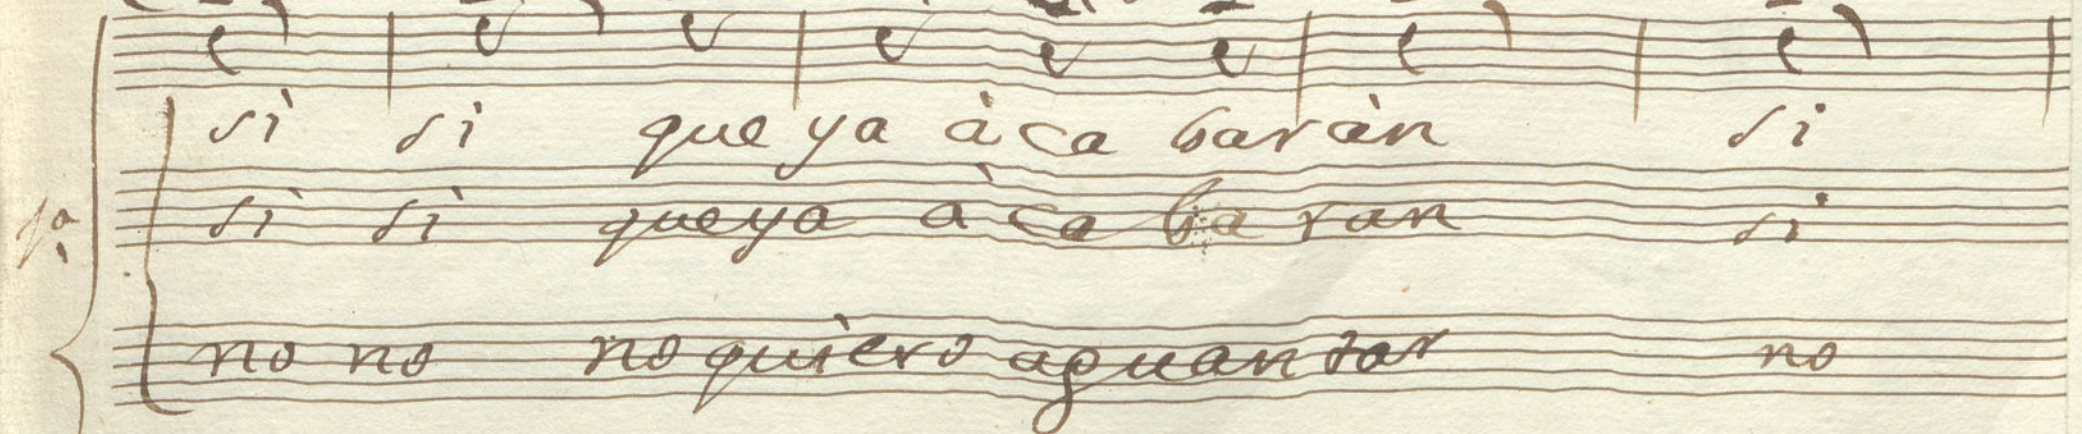 sì si que ya à ca bar àn si
sì sì que ya à ca ba ran si
no no no quièro aguantar no